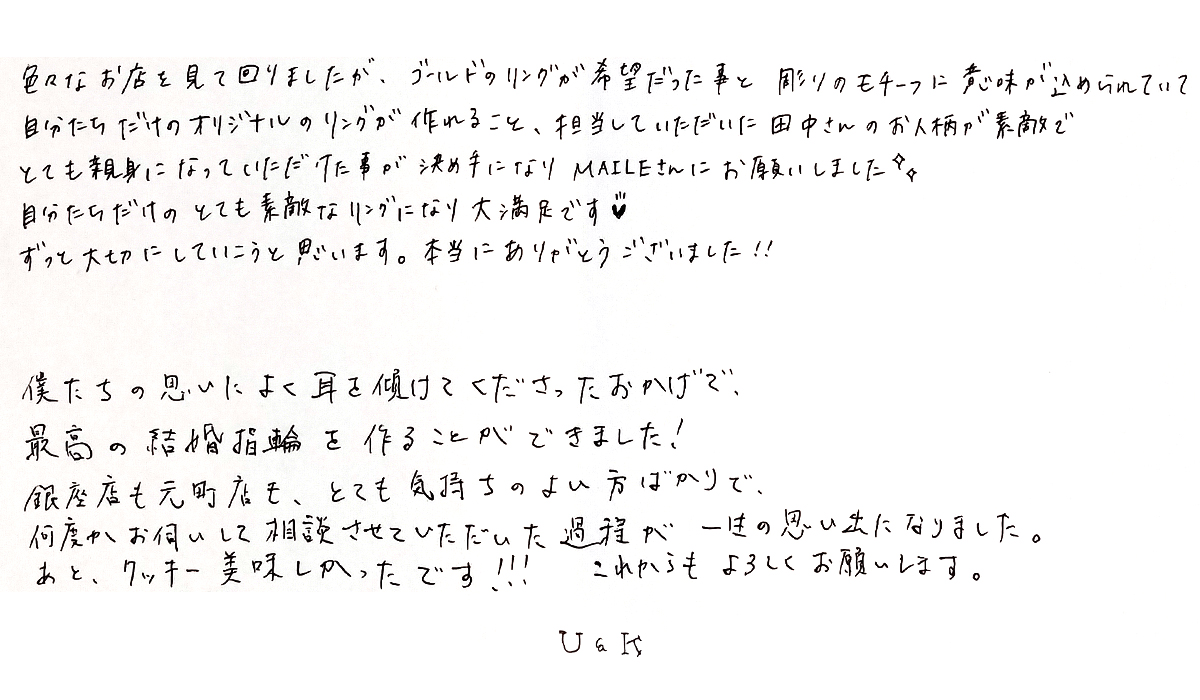 色々なお店を見て回りましたが、ゴールドのリングが希望だった事と 彫りのモチーフに意味が込められていて
自分たちだけのオリジナルのリングが作れること、担当していただいた田中さんのお人柄が素敵で
とても親身になっていただけた事が決め手になり MAILEさんにお願いしました✧✧
自分たちだけのとても素敵なリングになり大満足です♥
ずっと大切にしていこうと思います。本当にありがとうございました!!
僕たちの思いによく耳を傾けてくださったおかげで、
最高の結婚指輪を作ることができました!
銀座店も元町店も、とても気持ちのよい方ばかりで、
何度かお伺いして相談させていただいた過程が 一生の思い出になりました。
あと、クッキー美味しかったです!!! これからもよろしくお願いします。
U & K